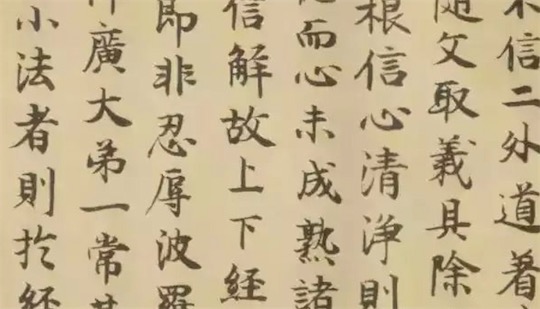 信二外道着
随文取義具除
根信心清淨則
而心未成熟諸
信解故上下経
即非忍辱波羅
廣大弟一常
小法者則扵経